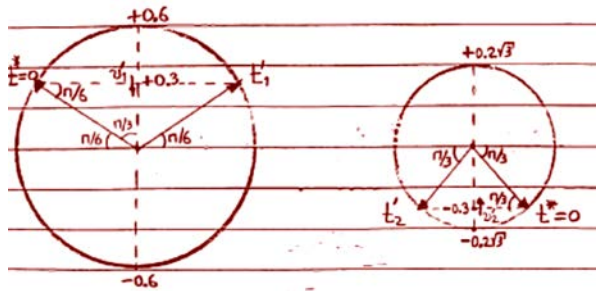 +0.6
t*=0
υ₁'
+0.3
t₁'
π/6
π/3
π/6
π/6
-0.6
+0.2√3
π/3
π/3
t₂'
-0.3
υ₂'
π/3
t*=0
-0.2√3